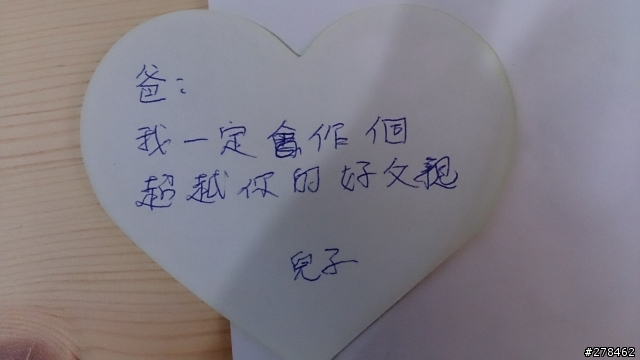 爸:
我一定會作個
超越你的好父親
兒子
#278462